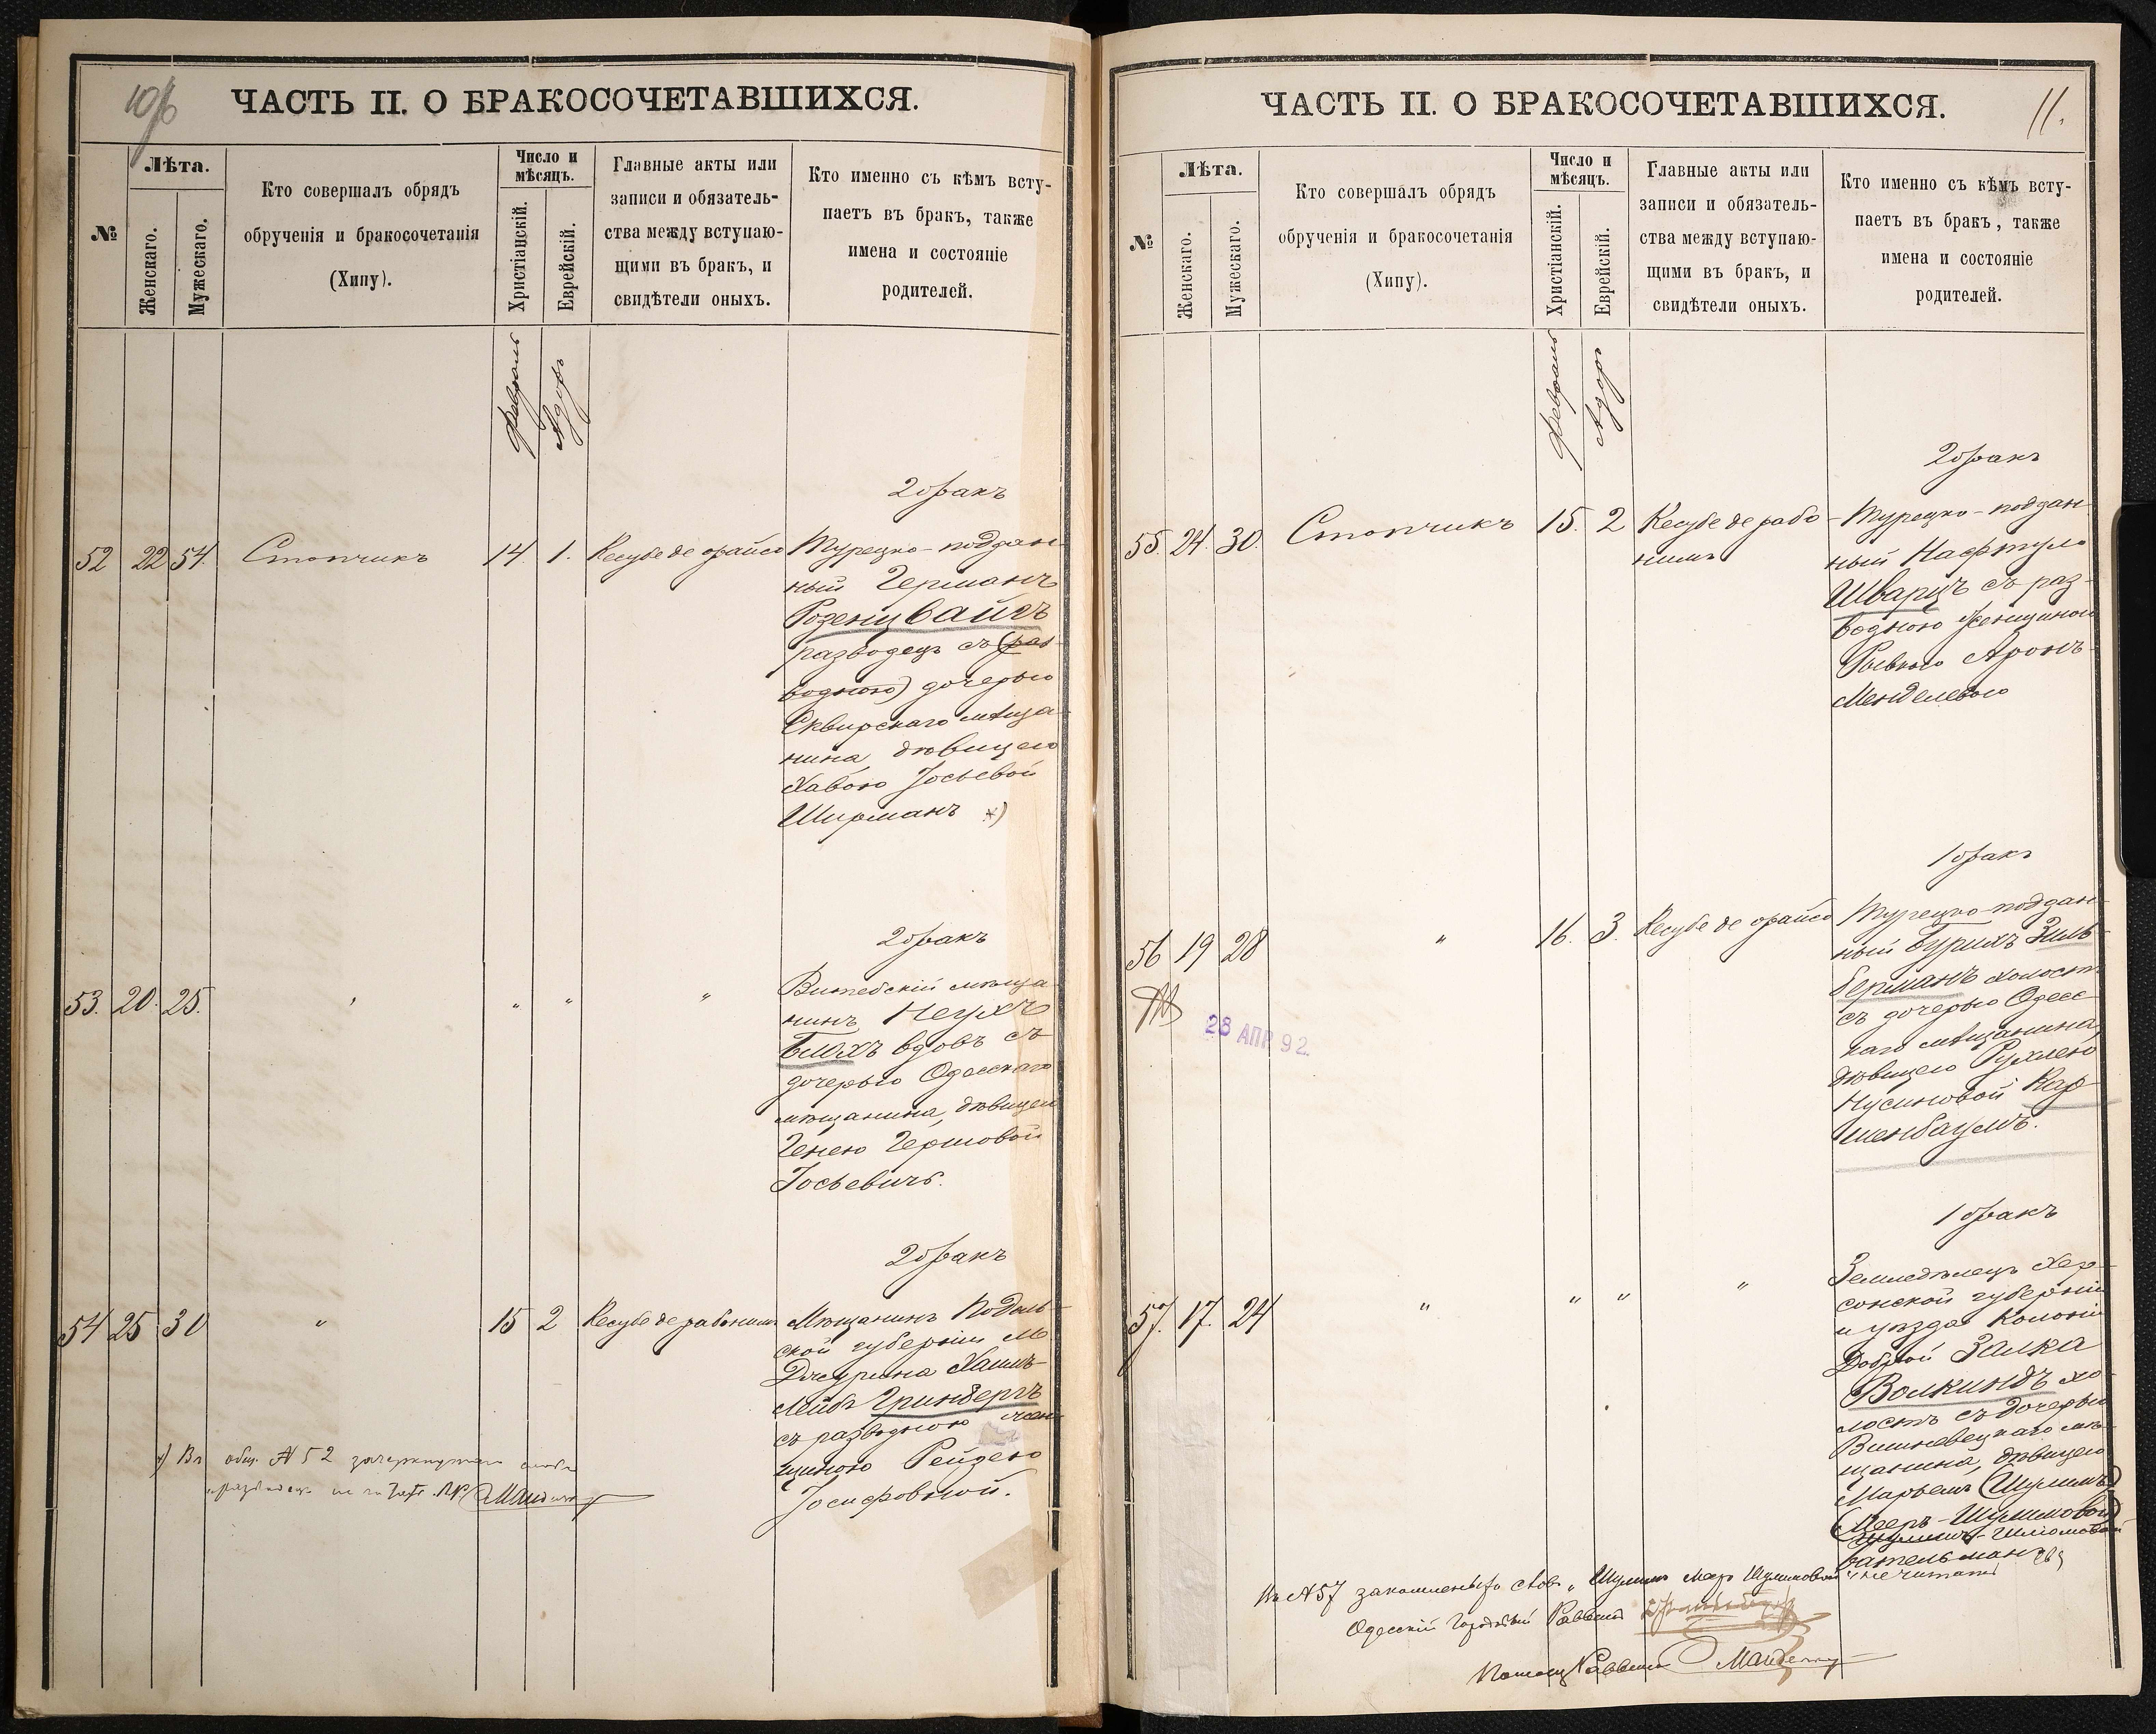 10/б
ЧАСТЬ II. О БРАКОСОЧЕТАВШИХСЯ.
№
Лѣта.
Женскаго.
Мужескаго.
Кто совершалъ обрядъ
обрученія и бракосочетанія
(Хипу).
Число и
мѣсяцъ.
Христіанскій.
Еврейскій.
Главные акты или
записи и обязатель-
ства между вступаю-
щими въ бракъ, и
свидѣтели оныхъ.
Кто именно съ кѣмъ всту-
паетъ въ бракъ, также
имена и состояніе
родителей.
Февраль
Адоръ
2 бракъ
52 22 54. Стопчикъ 14. 1. Кесубе де орайсо Турецко-поддан-
ный Германъ
Розенцвайгъ
разводецъ съ (раз-
водною) дочерью
Сквирскаго мѣща-
нина, дѣвицею
Хавою Іосьевой
Ширманъ *)
2 бракъ
53. 20. 25. " " " " Витебскій мѣща-
нинъ Неухъ
Блохъ вдовъ съ
дочерью Одесскаго
мѣщанина, дѣвицею
Генею Гершовой
Іосьевичъ.
2 бракъ
54 25 30 " 15 2 Кесубе де рабонимъ Мѣщанинъ Подоль-
ской губерніи м.
Джурина Хаимъ-
Лейбъ Гринбергъ
съ разводною жен-
щиною Рейзею
Іосифовной.
*) Въ общ. № 52 зачеркнутое слово
"разводною" не чит.
ЧАСТЬ II. О БРАКОСОЧЕТАВШИХСЯ.
11.
№
Лѣта.
Женскаго.
Мужескаго.
Кто совершалъ обрядъ
обрученія и бракосочетанія
(Хипу).
Число и
мѣсяцъ.
Христіанскій.
Еврейскій.
Главные акты или
записи и обязатель-
ства между вступаю-
щими въ бракъ, и
свидѣтели оныхъ.
Кто именно съ кѣмъ всту-
паетъ въ бракъ, также
имена и состояніе
родителей.
Февраль
Адоръ
2 бракъ
55. 24. 30. Стопчикъ 15. 2 Кесубе де рабо- Турецко-поддан-
нимъ ный Нафтуло
Шварцъ съ раз-
водною женщиною
Рывкою Аронъ-
Менделевою
1 бракъ
56 19 28 " 16. 3. Кесубе де орайсо Турецко-поддан-
ный Бурихъ Зиль-
берманъ холостъ
съ дочерью Одесс-
каго мѣщанина,
дѣвицею Рухлею
Нусиновой Кар-
шенбаумъ.
28 АПР 92.
1 бракъ
57. 17. 24 " " " " Земледѣлецъ Хер-
сонской губерніи
и уѣзда Колоніи
Доброй Залка
Волкиндъ хо-
лостъ съ дочерью
Вишневецкаго мѣ-
щанина, дѣвицею
Марьемъ (Шулимъ)
(Мееръ-Шулимовой)
Шулимъ-Шломовой
Бательманъ
Въ № 57 закавыченныхъ словъ "Шулимъ Меер Шулимовой" не читать
Одесскій Городовой Раввинъ
Помощ. Раввина